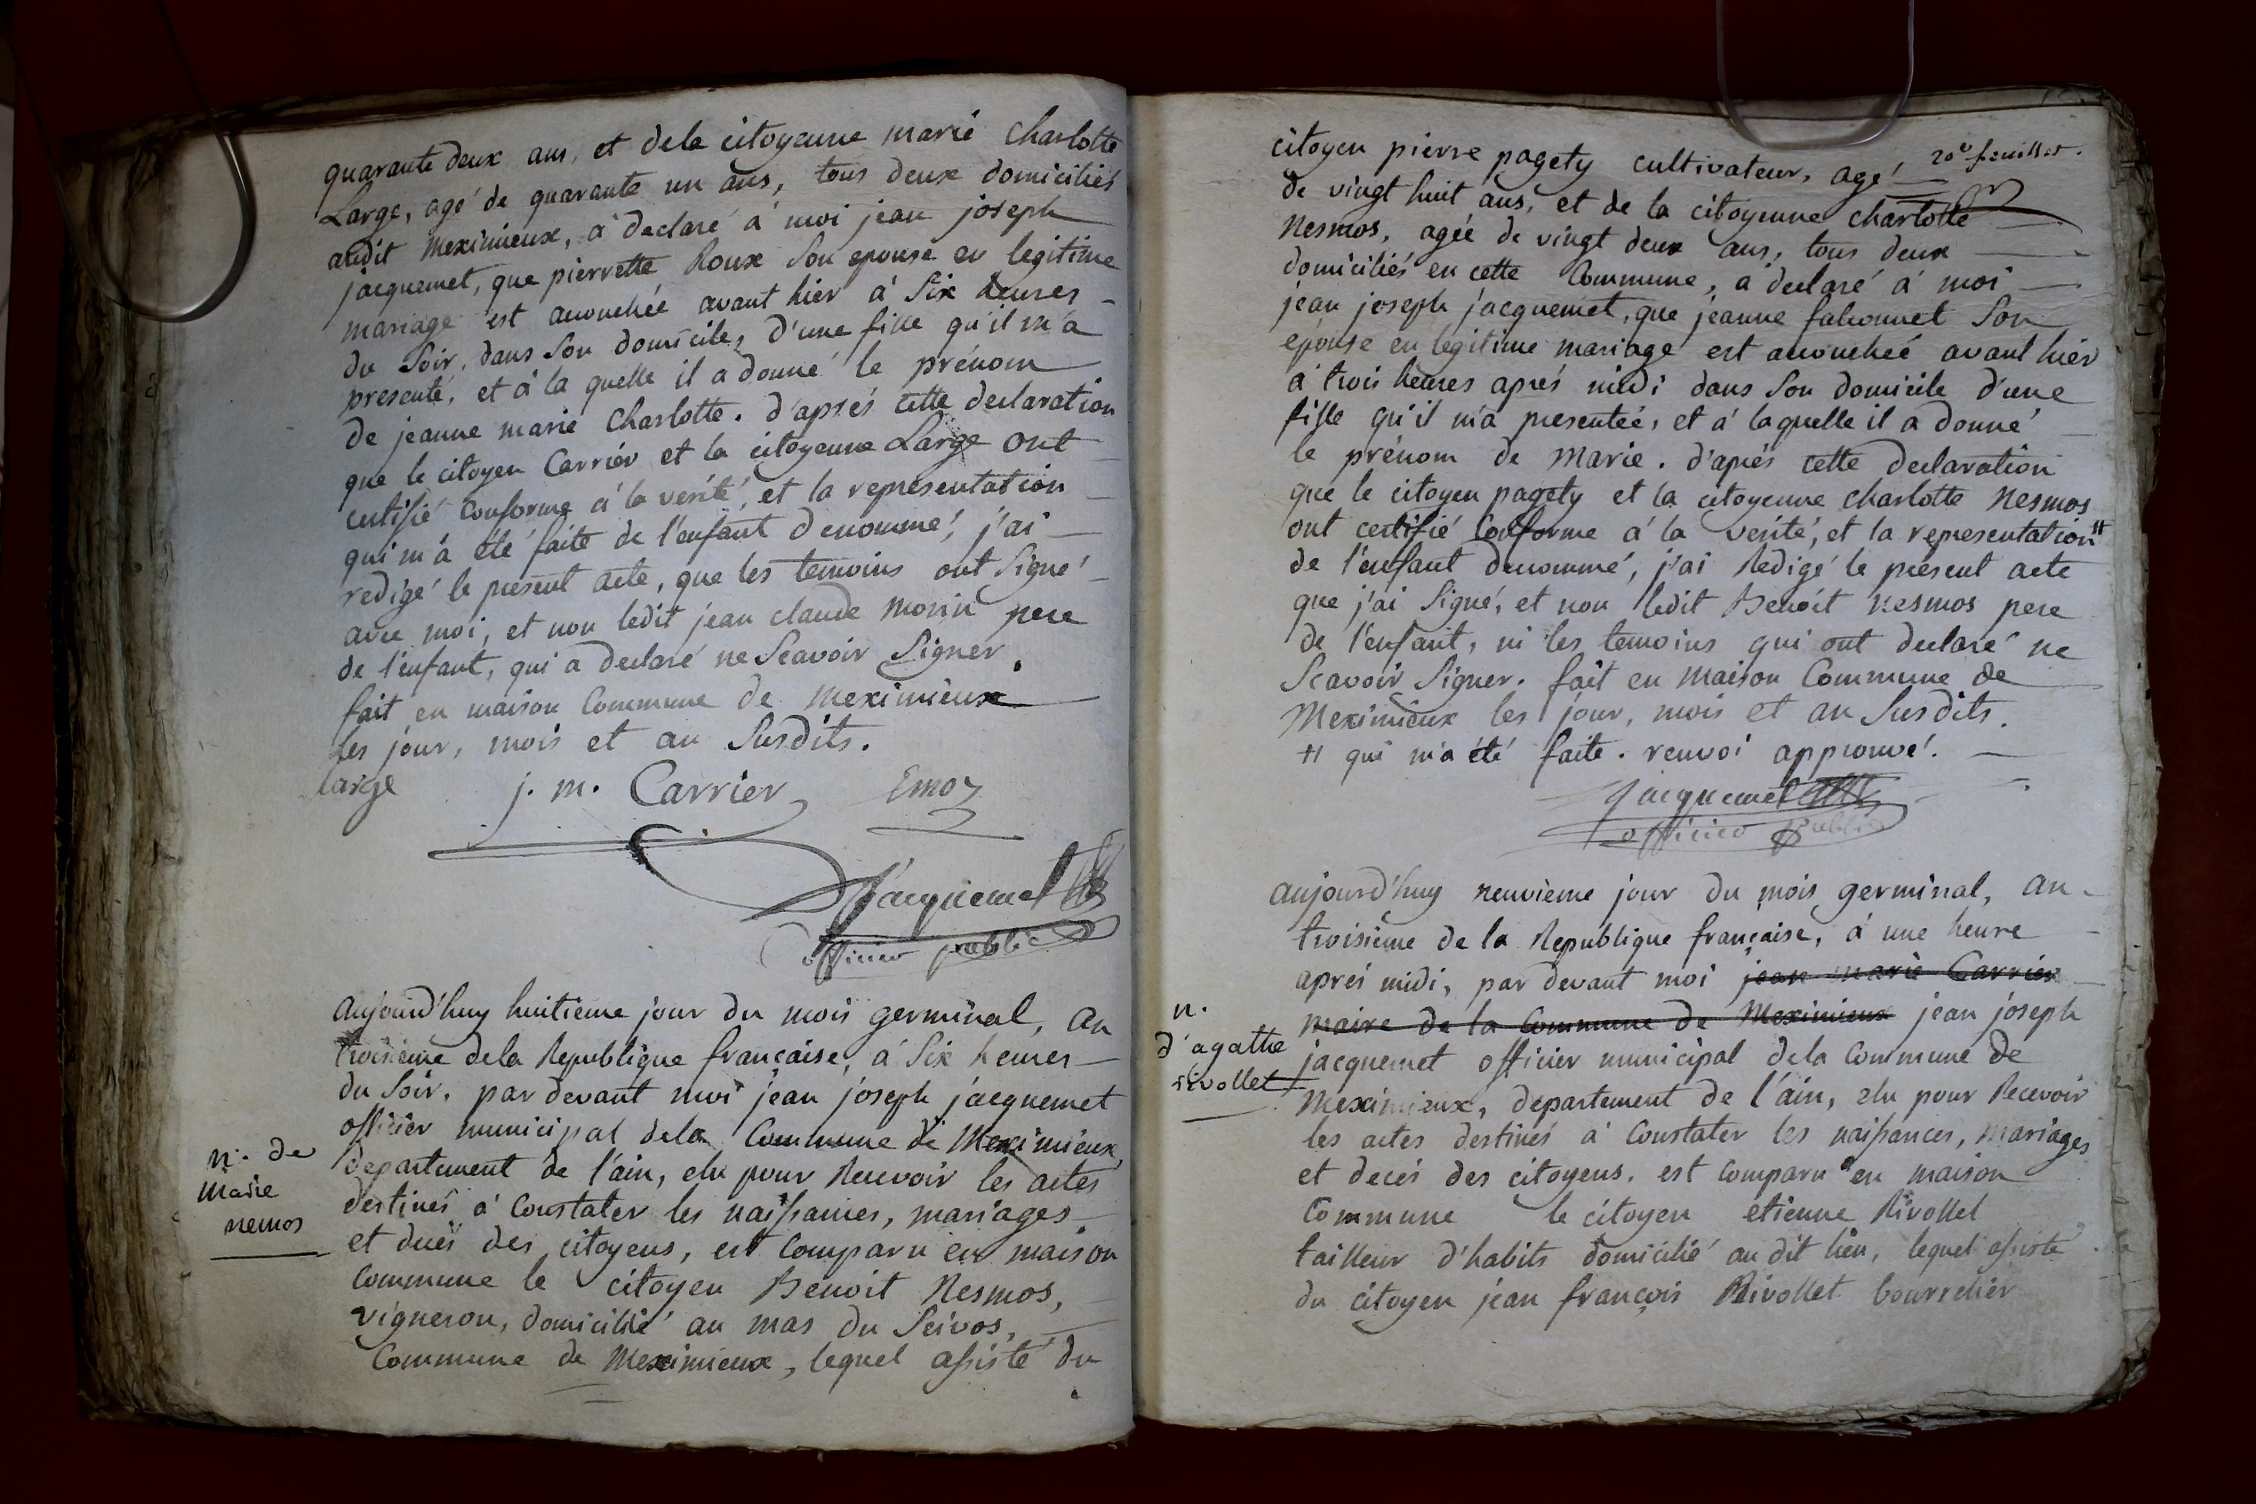 quarante deux ans, et dela citoyenne marie Charlotte
Large, agé de quarante un ans, tous deux domiciliés
audit Meximieux, a declaré a moi jean joseph
jacquemet, que pierrette Roux Son epouse en legitime
mariage est accouchée avant hier a Six heures
du Soir, dans Son domicile, d'une fille qu'il m'a
presenté, et à la quelle il a donné le prénom
de jeanne marie Charlotte. d'aprés cette declaration
que le citoyen Carrier et la citoyenne Large ont
certifié Conforme a la verité, et la representation
qui m'a été faite de l'enfant denommé, j'ai
redigé le present acte, que les temoins ont Signé
avec moi, et non ledit jean claude Morin pere
de l'enfant, qui a declaré ne Scavoir Signer.
fait en maison Commune de Meximieux
Les jour, mois et an Susdits.
large j. m. Carrier Emoz
Jacquemet
officier public
aujourd'huy huitieme jour du mois germinal, an
troisieme dela Republique française, a Six heures
du Soir, par devant moi jean joseph jacquemet
officier municipal dela Commune de Meximieux,
departement de l'ain, elu pour Recevoir les actes
n. de
Marie
nemos
destinés a Constater les naissances, mariages
et decés des citoyens, est Comparu en maison
Commune le citoyen Benoit Nesmos,
vigneron, domicilié au mas du Seivos,
Commune de Meximieux, lequel assisté du
20e feuillet.
citoyen pierre pagety cultivateur, agé
de vingt huit ans, et de la citoyenne charlotte
Nesmos, agée de vingt deux ans, tous deux
domiciliés en cette Commune, a declaré a moi
jean joseph jacquemet, que jeanne falconnet Son
epouse en legitime mariage est accouchée avant hier
a trois heures aprés midi dans Son domicile d'une
fille qu'il m'a presentée, et a laquelle il a donné
le prénom de Marie. d'aprés cette declaration
que le citoyen pagety et la citoyenne charlotte Nesmos
ont certifié Conforme a la verité, et la representation #
de l'enfant denommé, j'ai Redigé le présent acte
que j'ai Signé, et non ledit Benoit nesmos pere
de l'enfant, ni les temoins qui ont declaré ne
Scavoir Signer. fait en Maison Commune de
Meximieux les jour, mois et an Susdits.
# qui m'a été faite. renvoi approuvé.
Jacquemet
officier public
aujourd'huy neuvieme jour du mois germinal, an
troisieme de la Republique française, a une heure
aprés midi, par devant moi jean marie Carrier
maire de la Commune de Meximieux jean joseph
n.
d'agathe
rivollet
jacquemet officier municipal dela Commune de
Meximieux, departement de l'ain, elu pour Recevoir
les actes destinés a Constater les naissances, mariages
et decés des citoyens, est Comparu en maison
Commune le citoyen etienne Rivollet
tailleur d'habits domicilié au dit lieu, lequel assisté
du citoyen jean françois Rivollet bourrelier